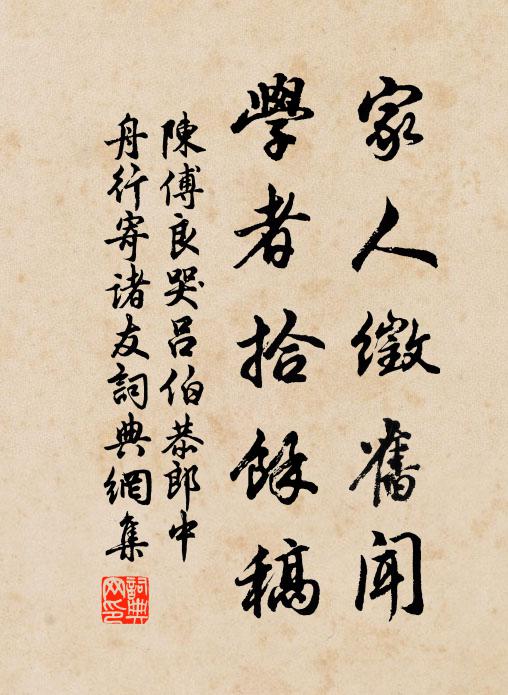 家人徵舊聞
學者拾餘稿
陳傅良哭呂伯恭郎中
舟行寄諸友詞典網集
詞典網印